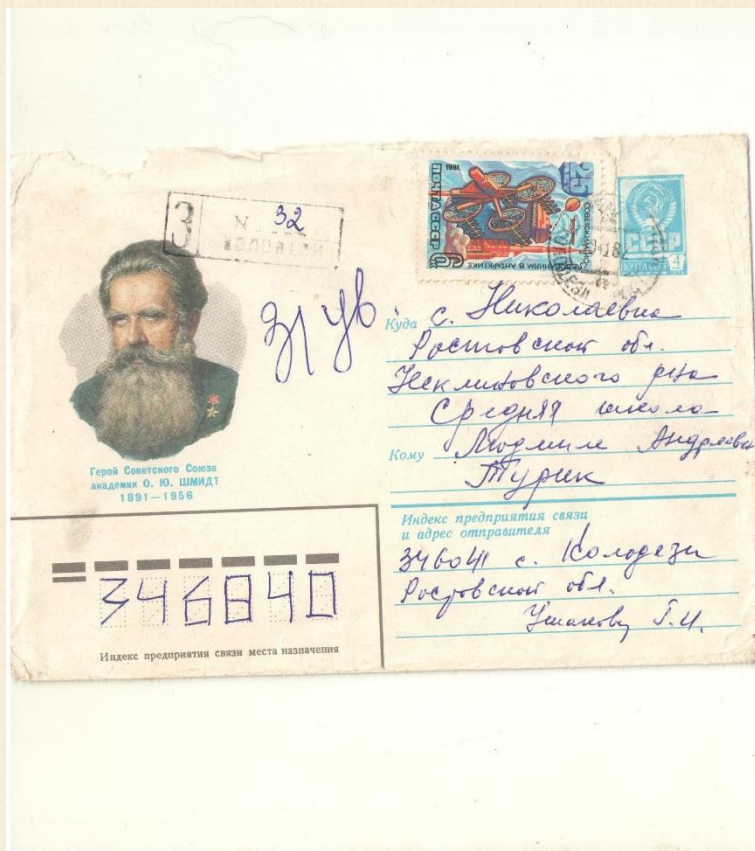 З
№ 32
Колодези
31 ув.
25
ИССЛЕДОВАНИЯМ В АНТАРКТИКЕ
ПОЧТА СССР
1981
6К
СССР
ПОЧТА
4
Герой Советского Союза
академик О. Ю. ШМИДТ
1891—1956
Куда с. Николаевка
Ростовской обл.
Неклиновского р-на
Средняя школа
Кому Людмиле Андреевне
Турик
Индекс предприятия связи
и адрес отправителя
346041 с. Колодези
Ростовской обл.
Г.И.
346840
Индекс предприятия связи места назначения